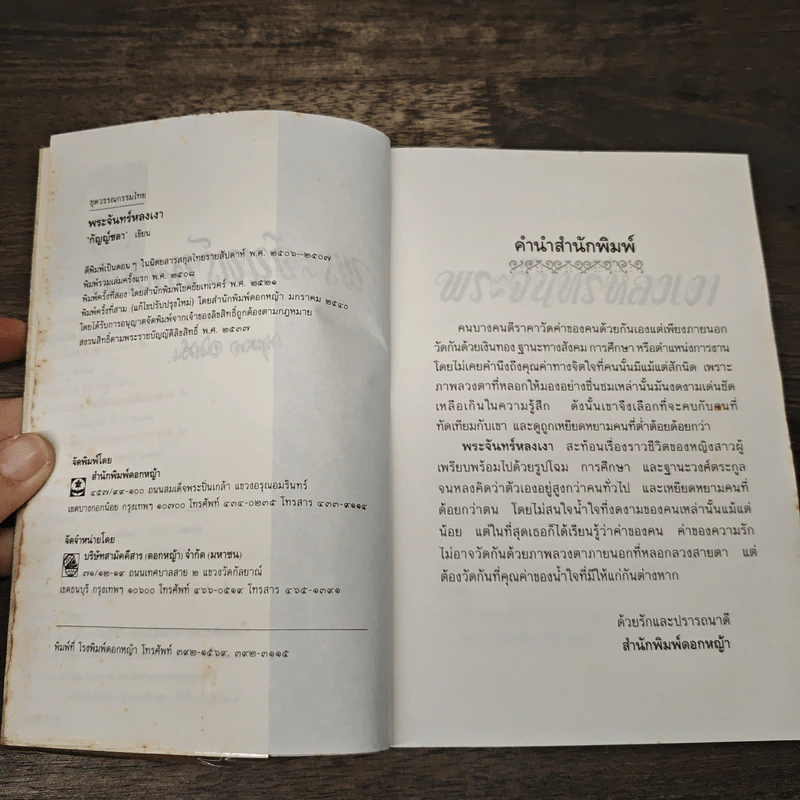 ชุดวรรณกรรมไทย
พระจันทร์หลงเงา
"กัญญ์ชลา" เขียน
ตีพิมพ์เป็นตอนๆ ในนิตยสารสกุลไทยรายสัปดาห์ พ.ศ. ๒๕๐๖-๒๕๐๗
พิมพ์รวมเล่มครั้งแรก พ.ศ. ๒๕๐๘
พิมพ์ครั้งที่สอง โดยสำนักพิมพ์โชคชัยเทเวศร์ พ.ศ. ๒๕๒๑
พิมพ์ครั้งที่สาม (แก้ไขปรับปรุงใหม่) โดยสำนักพิมพ์ดอกหญ้า มกราคม ๒๕๔๐
โดยได้รับการอนุญาตจัดพิมพ์จากเจ้าของลิขสิทธิ์ถูกต้องตามกฎหมาย
สงวนสิทธิ์ตามพระราชบัญญัติลิขสิทธิ์ พ.ศ. ๒๕๓๗
จัดพิมพ์โดย
สำนักพิมพ์ดอกหญ้า
๔๕๗/๙๙-๑๐๐ ถนนสมเด็จพระปิ่นเกล้า แขวงอรุณอมรินทร์
เขตบางกอกน้อย กรุงเทพฯ ๑๐๗๐๐ โทรศัพท์ ๔๓๔-๐๒๓๕ โทรสาร ๔๓๓-๙๑๑๔
จัดจำหน่ายโดย
บริษัทสามัคคีสาร (ดอกหญ้า) จำกัด (มหาชน)
๓๑/๑๒-๑๙ ถนนเทศบาลสาย ๒ แขวงวัดกัลยาณ์
เขตธนบุรี กรุงเทพฯ ๑๐๖๐๐ โทรศัพท์ ๔๖๖-๐๕๑๙ โทรสาร ๔๖๕-๑๓๙๑
พิมพ์ที่ โรงพิมพ์ดอกหญ้า โทรศัพท์ ๓๙๒-๑๕๖๙, ๓๙๒-๓๑๑๕
คำนำสำนักพิมพ์
คนบางคนตีราคาวัดค่าของคนด้วยกันเองแต่เพียงภายนอก
วัดกันด้วยเงินทอง ฐานะทางสังคม การศึกษา หรือตำแหน่งการงาน
โดยไม่เคยคำนึงถึงคุณค่าทางจิตใจที่คนนั้นมีแม้แต่สักนิด เพราะ
ภาพลวงตาที่หลอกให้มองอย่างชื่นชมเหล่านั้นมันงดงามเด่นชัด
เหลือเกินในความรู้สึก ดังนั้นเขาจึงเลือกที่จะคบกับคนที่
ทัดเทียมกับเขา และดูถูกเหยียดหยามคนที่ต่ำต้อยด้อยกว่า
พระจันทร์หลงเงา สะท้อนเรื่องราวชีวิตของหญิงสาวผู้
เพรียบพร้อมไปด้วยรูปโฉม การศึกษา และฐานะวงศ์ตระกูล
จนหลงคิดว่าตัวเองอยู่สูงกว่าคนทั่วไป และเหยียดหยามคนที่
ด้อยกว่าตน โดยไม่สนใจน้ำใจที่งดงามของคนเหล่านั้นแม้แต่
น้อย แต่ในที่สุดเธอก็ได้เรียนรู้ว่าค่าของคน ค่าของความรัก
ไม่อาจวัดกันด้วยภาพลวงตาภายนอกที่หลอกลวงสายตา แต่
ต้องวัดกันที่คุณค่าของน้ำใจที่มีให้แก่กันต่างหาก
ด้วยรักและปรารถนาดี
สำนักพิมพ์ดอกหญ้า